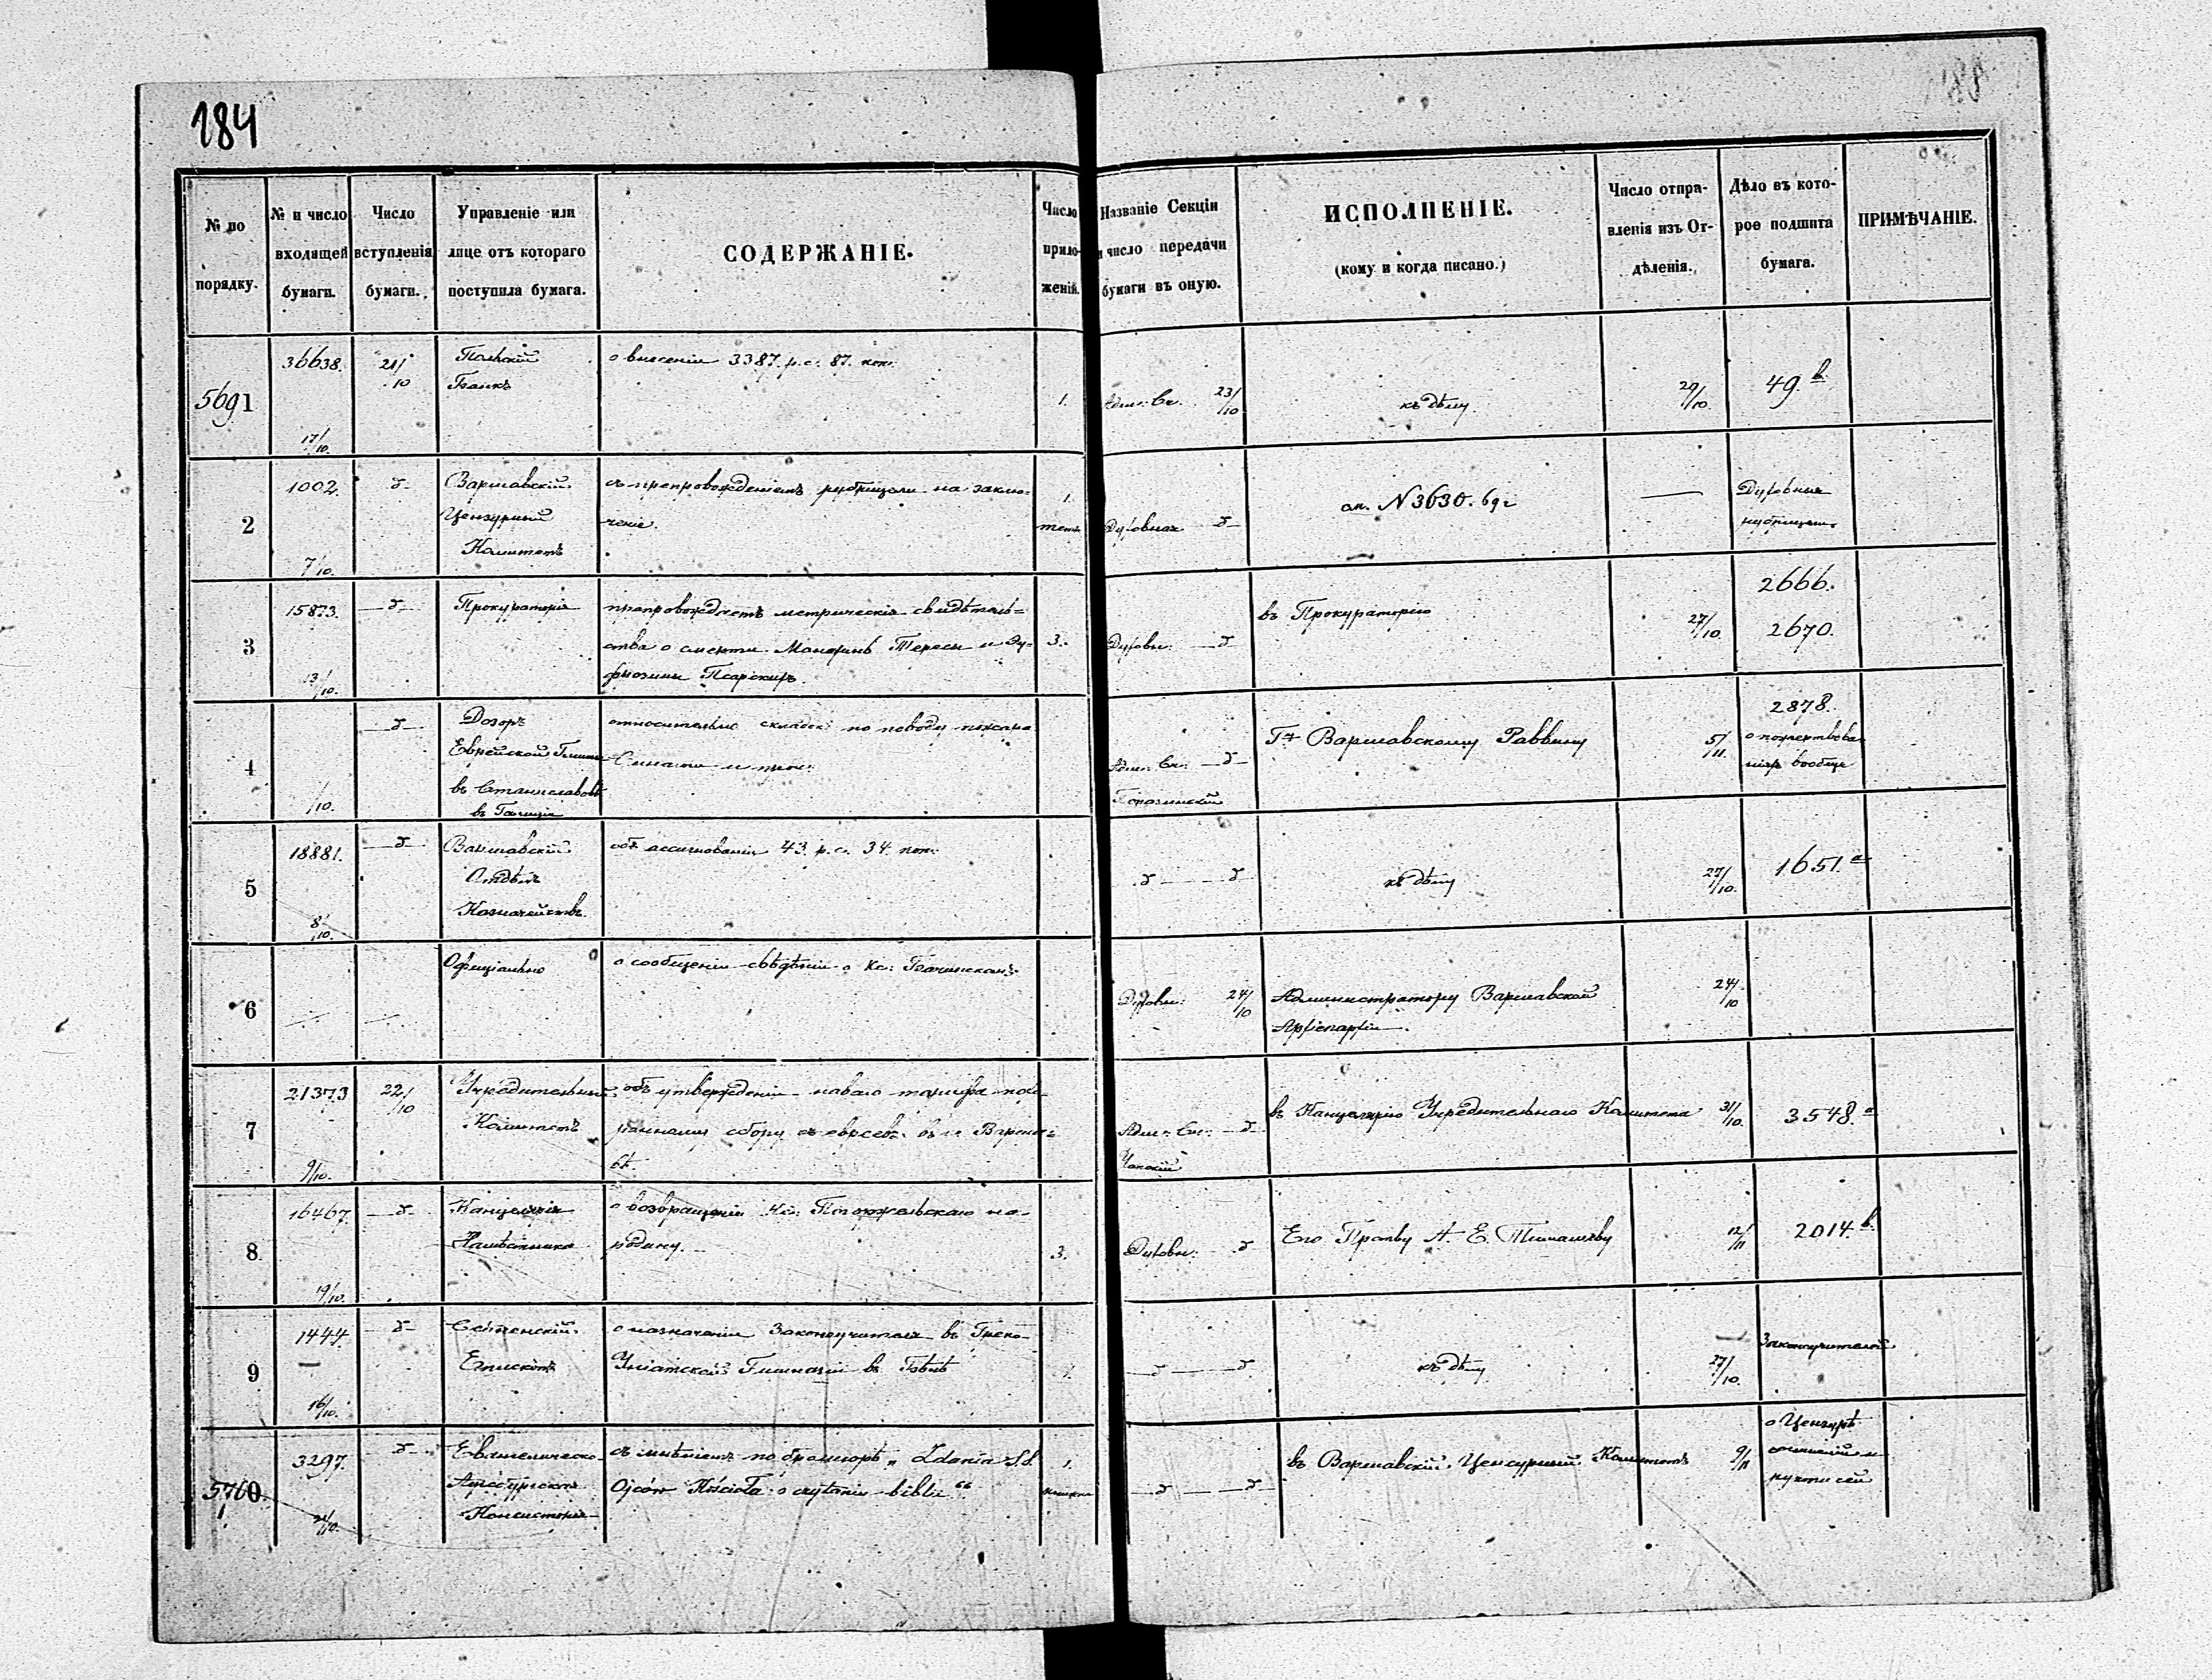 184
№ по порядку.
№ и число входящей бумаги.
Число вступленія бумаги.
Управленіе или лице отъ котораго поступила бумага.
СОДЕРЖАНІЕ.
Число приложеній.
Названіе Секціи и число передачи бумаги въ оную.
ИСПОЛНЕНІЕ.
(кому и когда писано.)
Число отправленія изъ Отдѣленія.
Дѣло въ которое подшита бумага.
ПРИМѢЧАНІЕ.
5691
36638.
17/10.
21/10
Польскій
Банкъ
о внесеніи 3387. р. с. 87. коп.
1.
23/10
къ дѣлу.
29/10.
49. в.
2
1002.
7/10.
Варшавскій
Цензурный
Комитетъ
съ препровожденіемъ рубрицели на заклю-
ченіе.
1.
Духовная
№ 3630. 69 г
Духовныя
3
15873.
13/10.
Прокураторія
препровождаетъ метрическія свидѣтель-
ства о смерти Тересы и Еу-
фрозины Псарскихъ.
3.
Духовн:
въ Прокураторію
27/10.
2666.
2670.
4
/10.
Дозоръ
Еврейской Гмины
въ Станиславовѣ
въ Галиціи
относительно складокъ по поводу пожара
Гг. Варшавскому Раввину
5/11.
2878.
о пожертвова-
ніяхъ вообще
5
18881.
8/10.
Варшавскій
Отдѣлъ
Казначействъ.
объ ассигнованіи 43. р. с. 34. коп.
къ дѣлу
27/10.
1651. а
6
Офиціально
о сообщеніи свѣдѣній о Кс:
Духовн:
24/10
Администратору Варшавской
Архіепархіи.
24/10
7
21373
9/10.
22/10
Учредительный
Комитетъ
объ утвержденіи новаго тарифа
сбору съ евреевъ
въ Канцелярію Учредительнаго Комитета
31/10.
3548. а
8
16467.
19/10.
Канцелярія
Намѣстника
о возвращеніи Кс: на
родину.
3.
Духовн:
Его Прству А. Е. Тимашеву
12/11
2014. в.
9
1444.
16/10.
Сейненскій
Епископъ
о назначеніи Законоучителя въ Греко-
Уніатской Гимназіи въ Бѣлѣ
1.
къ дѣлу
27/10.
Законоучителей
5700
3297.
21/10.
Евангелическо-
Аугсбургская
Консисторія
съ мнѣніемъ по брошюрѣ „Zdania S.S.
Ojców Kościoła o czytaniu biblii“
1.
въ Варшавскій Цензурный Комитетъ
9/11
о Цензурѣ
сочиненій и
рукописей